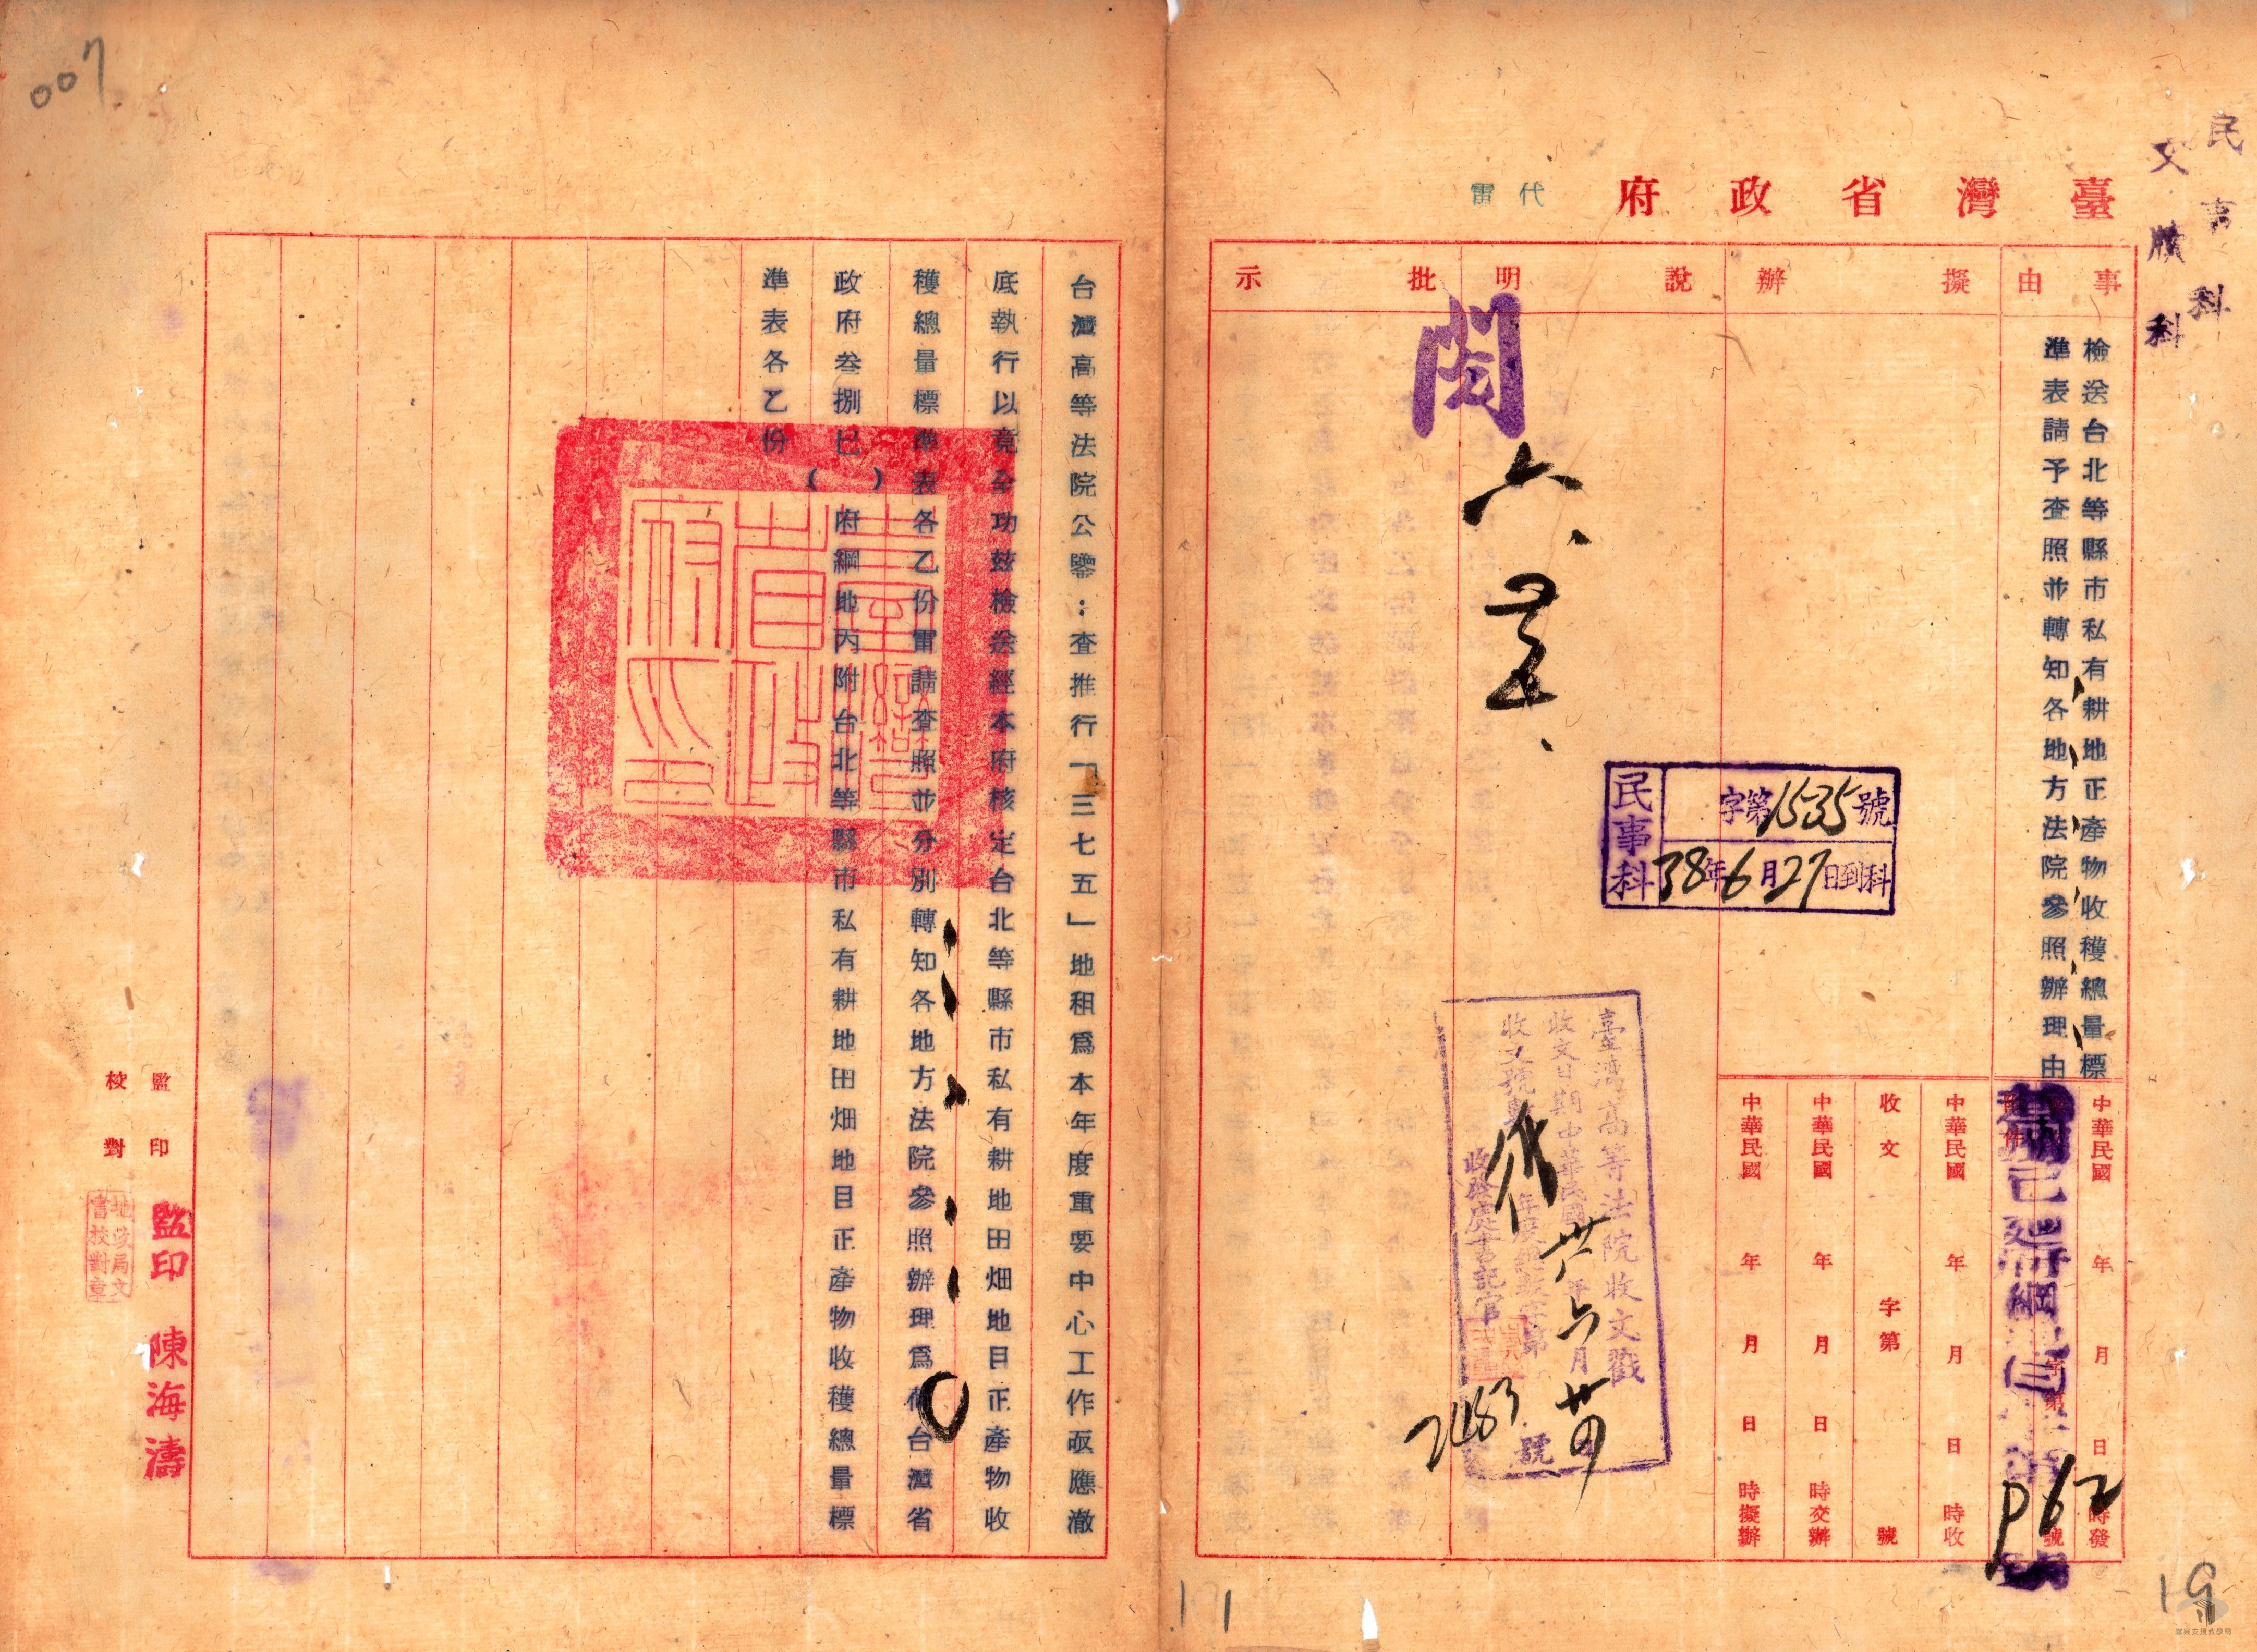 民事科
文牘科
臺灣省政府
代電
事由
擬辦
說明
批示
檢送台北等縣市私有耕地正產物收穫總量標
準表請予查照並轉知各地方法院參照辦理由
中華民國 年 月 日 時發
附件
字第 號
中華民國 年 月 日 時收
收文 字第 號
中華民國 年 月 日 時交辦
中華民國 年 月 日 時擬辦
P62
閱
六、
民事科
字第1535號
38年6月27日到科
臺灣高等法院收文戳
收文日期中華民國卅八年六月廿四
收文號數 年度總收字第 號
收發處書記官
台灣高等法院公鑒：查推行「三七五」地租為本年度重要中心工作亟應澈
底執行以竟全功茲檢送經本府核定台北等縣市私有耕地田畑地目正產物收
穫總量標準表各乙份電請查照並分別轉知各地方法院參照辦理為荷台灣省
政府叁捌已（ ）府綱地丙附台北等縣市私有耕地田畑地目正產物收穫總量標
準表各乙份
臺灣省政府印
監印
監印 陳海濤
校對
地政局文書校對章
007
171
19